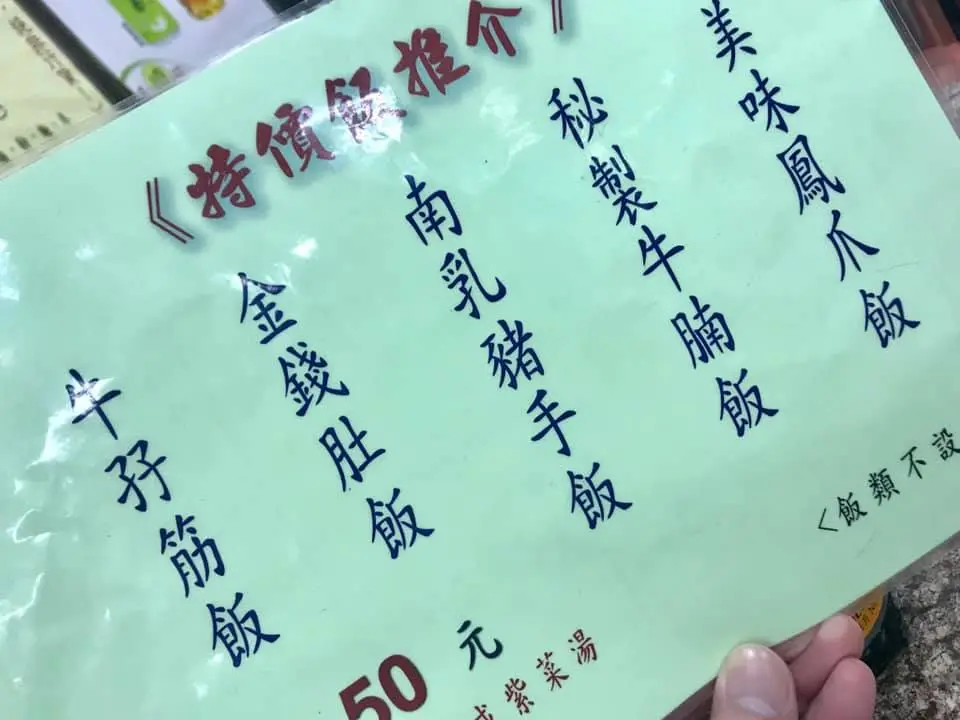 《特價飯推介》
美味鳳爪飯
秘製牛腩飯
南乳豬手飯
金錢肚飯
牛孖筋飯
<飯類不設
50元
紫菜湯